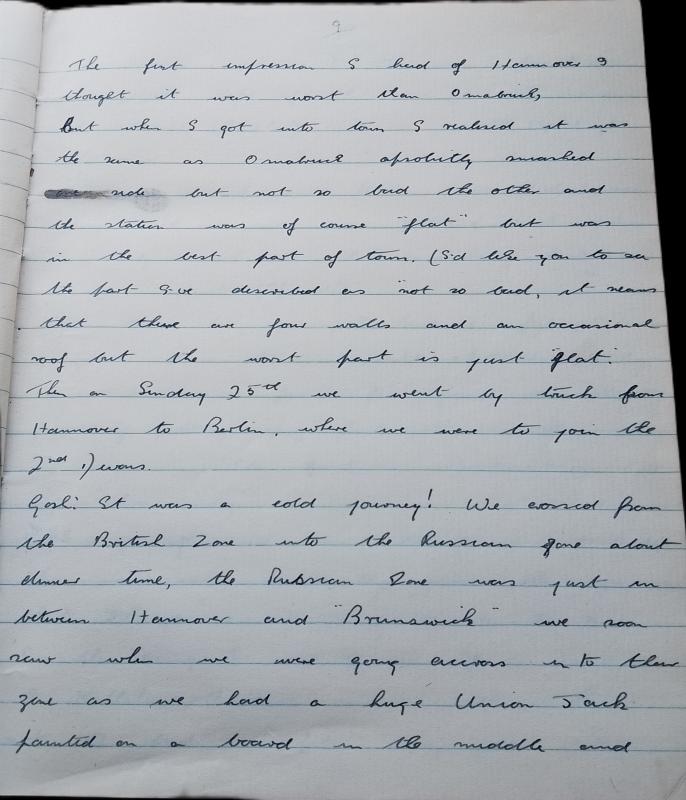 9
The first impression I had of Hannover I
thought it was worst than Osnabrick,
But when I got into town I realised it was
the same as Osnabruck absolutly smashed
side but not so bad the other and
the station was of course "flat" but was
in the best part of town. (I'd like you to see
the part I've described as "not so bad, it means
that there are four walls and an occasional
roof but the worst part is just flat."
Then on Sunday 25th we went by truck from
Hannover to Berlin, where we were to join the
2nd Devons.
Gosh! It was a cold journey! We crossed from
the British Zone into the Russian Zone about
dinner time, the Russian Zone was just in
between Hannover and "Brunswick" we soon
saw when we were going accross in to their
zone as we had a huge Union Jack
painted on a board in the middle and